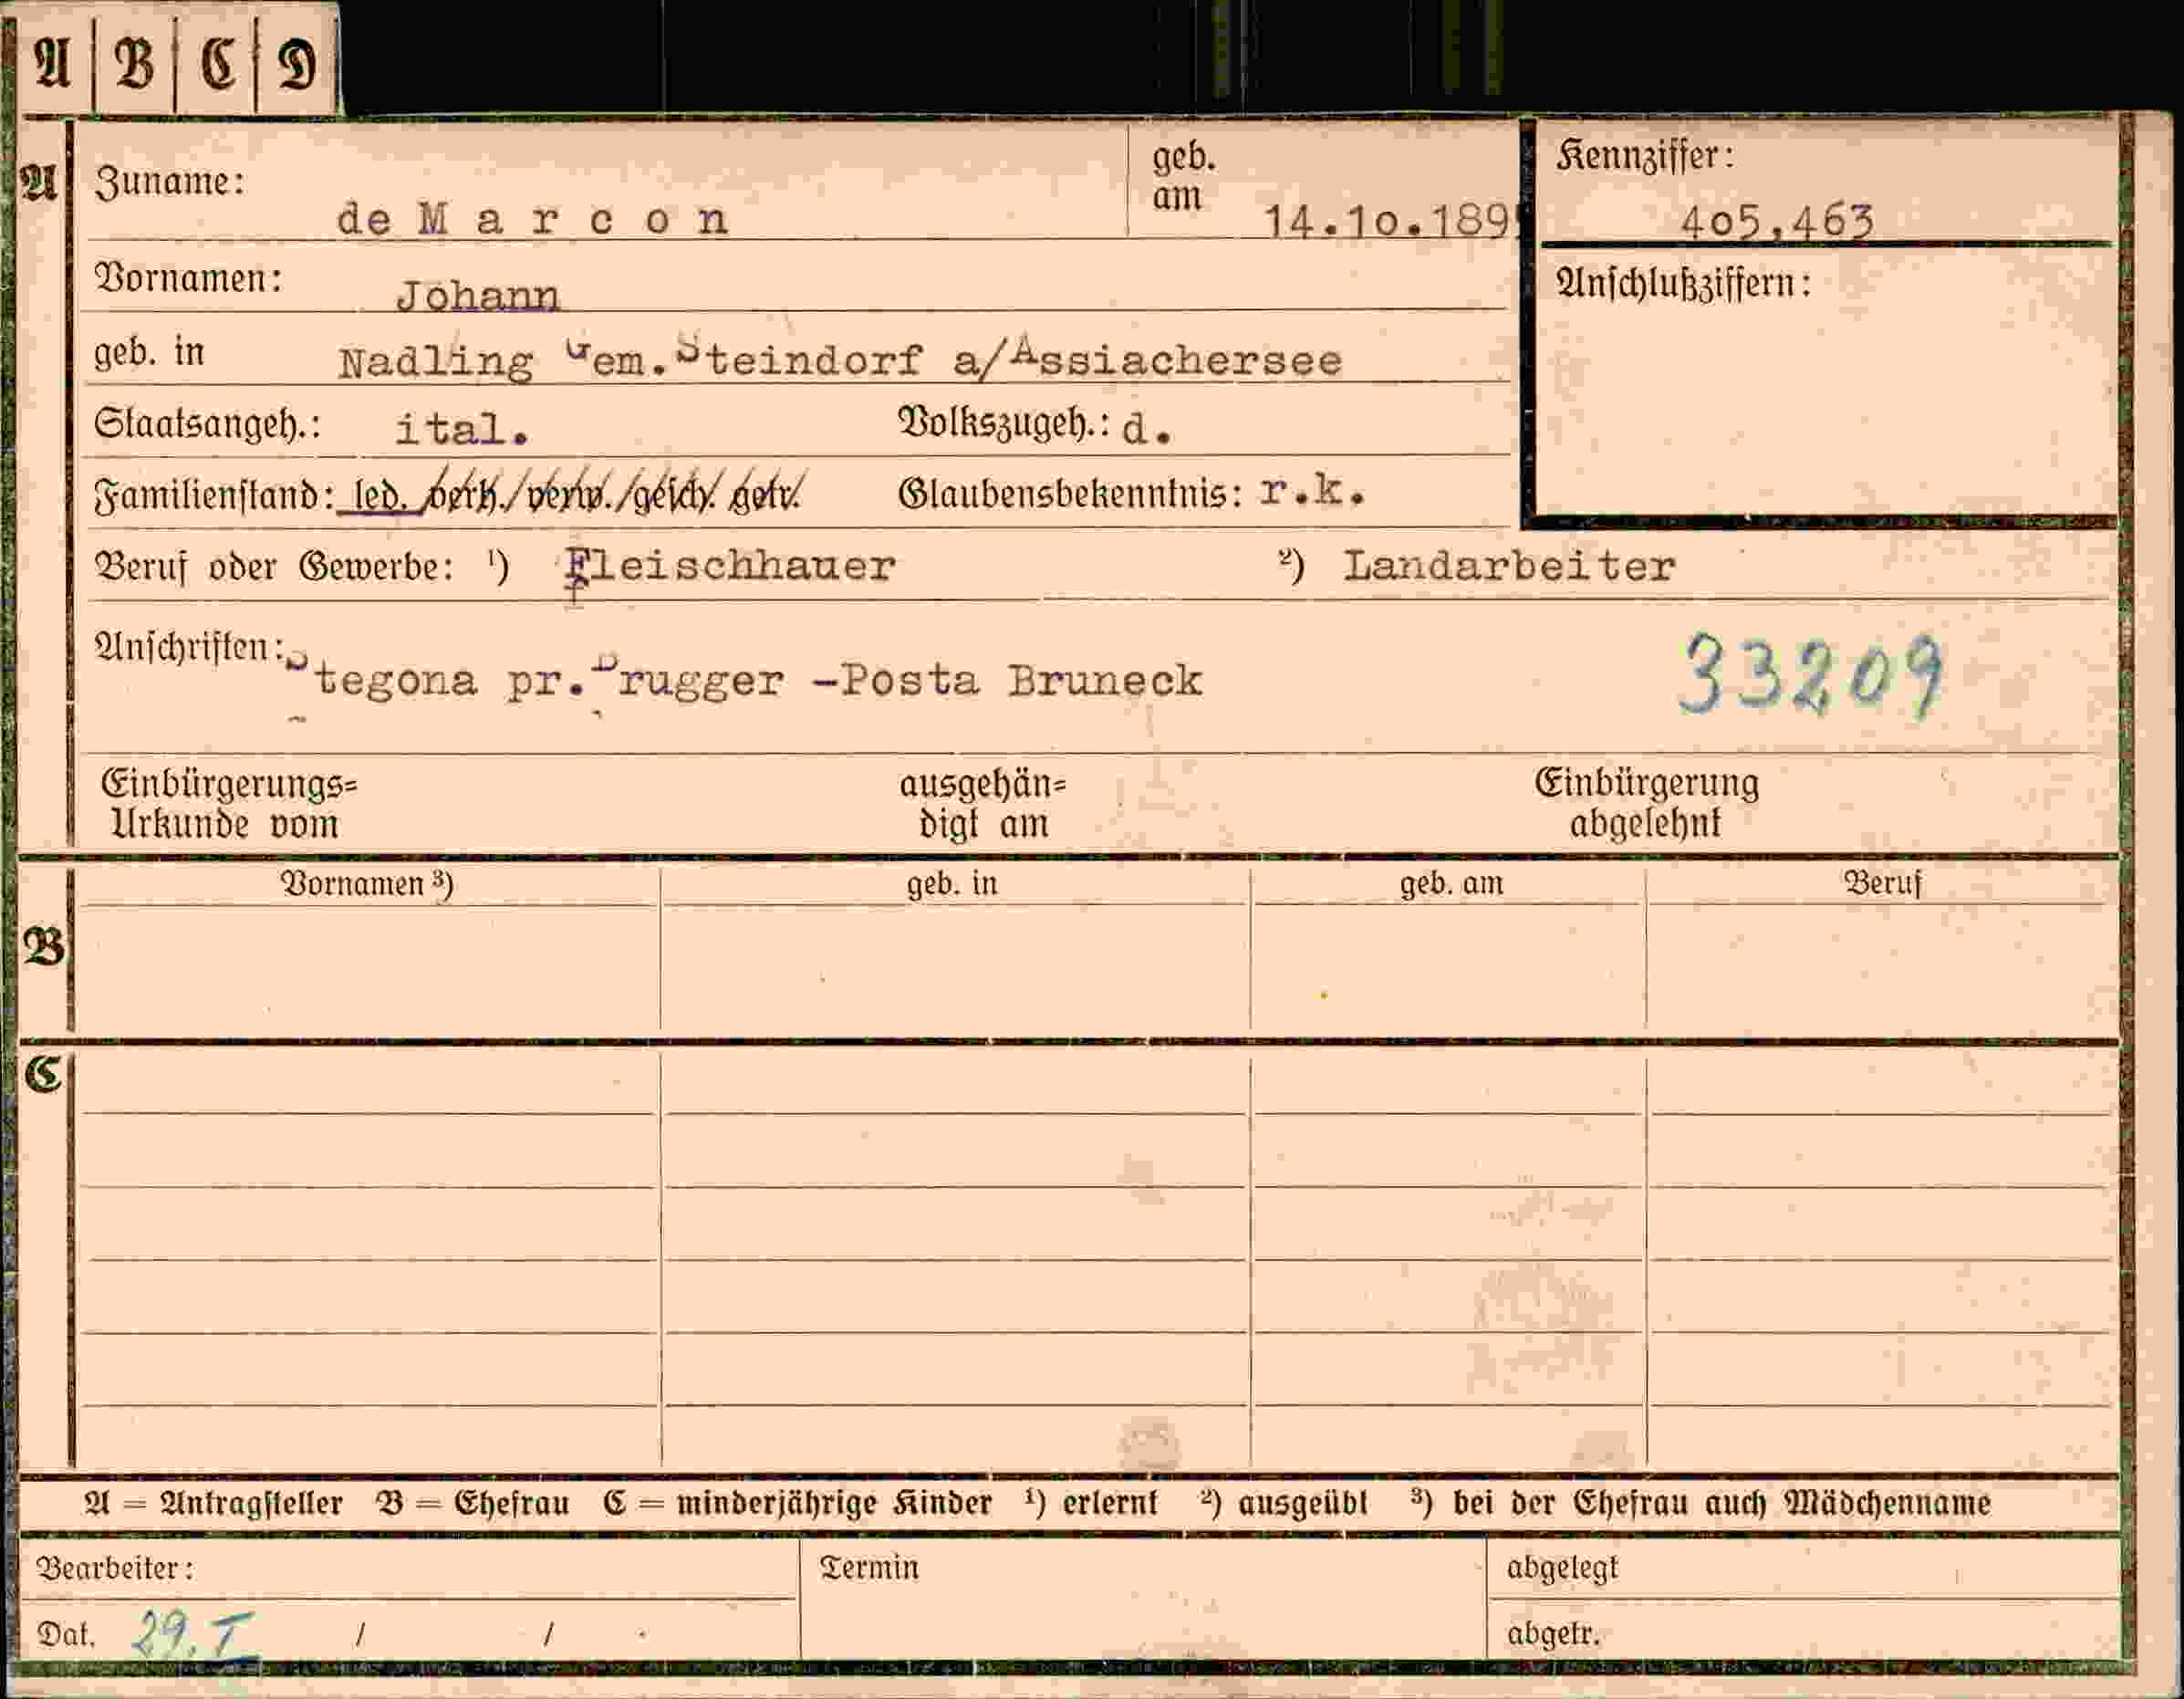 A B C D
A
Zuname: de M a r c o n
geb. am 14.10.189
Kennziffer: 405,463
Vornamen: Johann
Anschlußziffern:
geb. in Nadling Gem.Steindorf a/Assiachersee
Staatsangeh.: ital. Volkszugeh.: d.
Familienstand: led. verh./verw./gesch. getr. Glaubensbekenntnis: r.k.
Beruf oder Gewerbe: ¹) Fleischhauer ²) Landarbeiter
Anschriften: Stegona pr.Brugger -Posta Bruneck
33209
Einbürgerungs=
Urkunde vom
ausgehän=
digt am
Einbürgerung
abgelehnt
Vornamen ³) geb. in geb. am Beruf
B
C
A = Antragsteller B = Ehefrau C = minderjährige Kinder ¹) erlernt ²) ausgeübt ³) bei der Ehefrau auch Mädchenname
Bearbeiter: Termin abgelegt
Dat. 29. I / / abgetr.